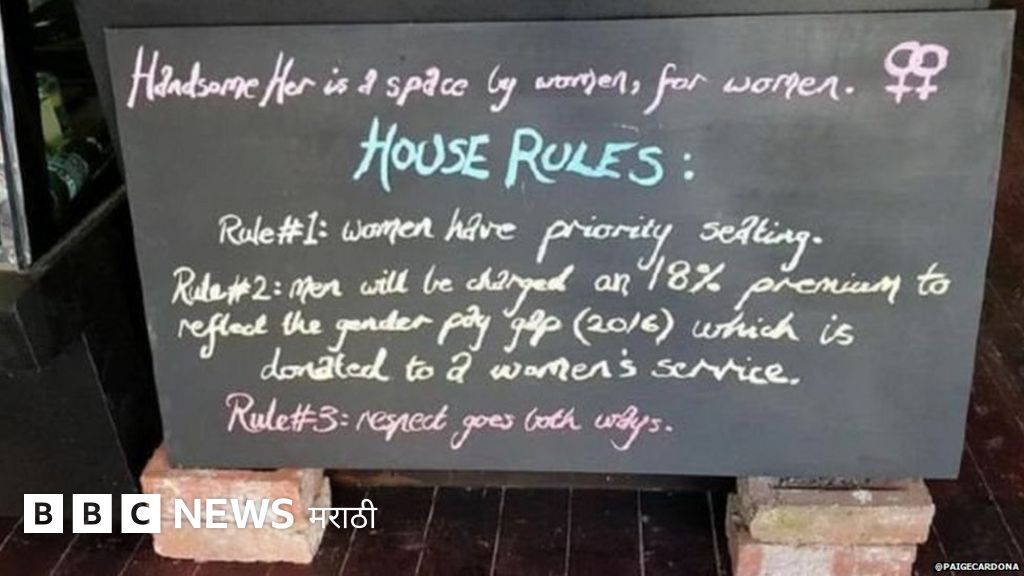 Handsome Her is a space by women, for women.
HOUSE RULES:
Rule#1: women have priority seating.
Rule#2: men will be charged an 18% premium to
reflect the gender pay gap (2016) which is
donated to a women's service.
Rule#3: respect goes both ways.
BBC NEWS मराठी
@PAIGECARDONA